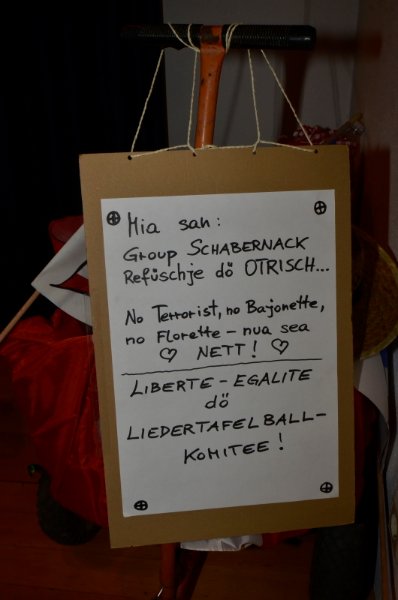 Mia san:
Group SCHABERNACK
Refüschje dö OTRISCH...
No Terrorist, no Bajonette,
no Florette – nua sea
♡ NETT! ♡
LIBERTE – EGALITE
dö
LIEDERTAFELBALL-
KOMITEE!